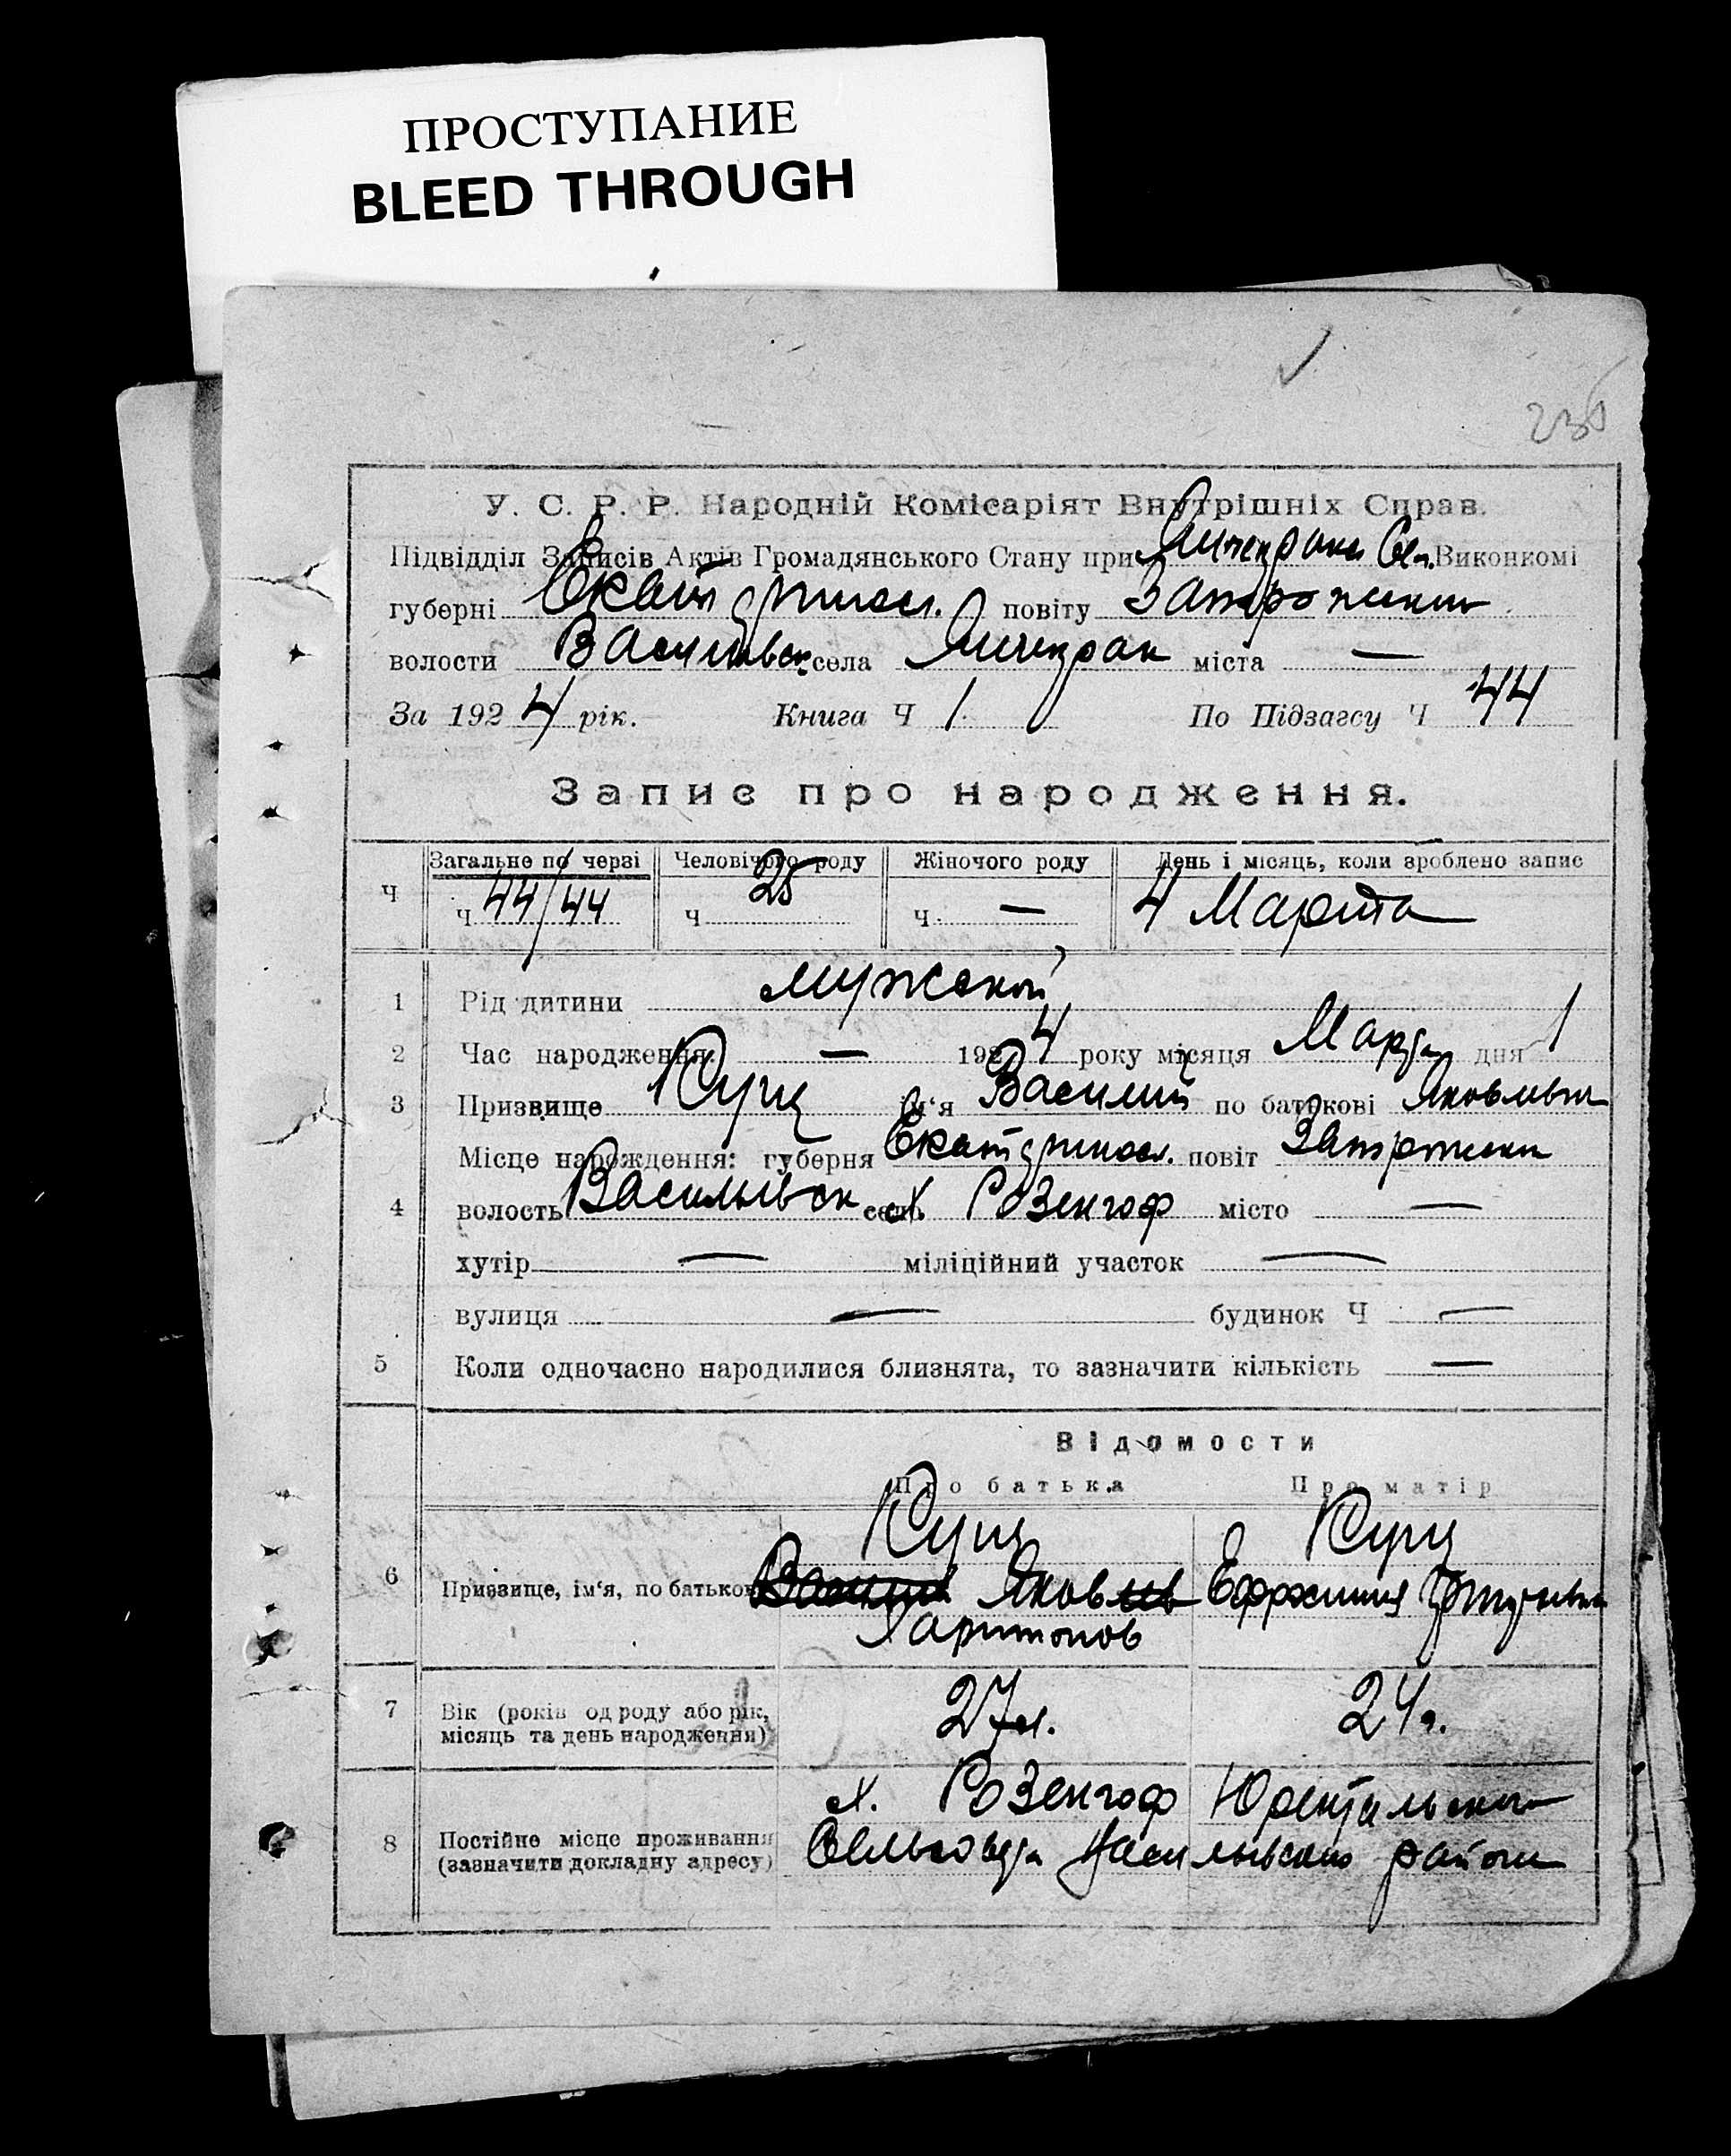 ПРОСТУПАНИЕ
BLEED THROUGH
У. С. Р. Р. Народній Комісаріят Внутрішніх Справ.
Підвідділ Записів Актів Громадянського Стану при Виконкомі
губерні Екатериносл. повіту Запорожский
волости Васильевск села міста —
За 1924 рік. Книга Ч 1 По Підзагсу Ч 44
Запис про народження.
Ч Загальне по черзі Человічого роду Жіночого роду День і місяць, коли зроблено запис
Ч 44/44 Ч 25 Ч — 4 Марта
1 Рід дитини мужской
2 Час народження — 1924 року місяця Марта дня 1
3 Призвище Курц ім'я Василий по батькові Яковлевич
Місце нарождення: губерня Екатериносл. повіт Запорожский
4 волость Васильевск село х. Розенгоф місто —
хутір — міліційний участок —
вулиця — будинок Ч —
5 Коли одночасно народилися близнята, то зазначити кількість —
Відомости
Про батька Про матір
Курц Курц
6 Призвище, ім'я, по батькові Василий Яковлев Ефросиния
Харитонов
7 Вік (років од роду або рік, місяць та день народження) 27 л. 24 г.
8 Постійне місце проживання (зазначити докладну адресу) х. Розенгоф
Сельсовета Васильевского района